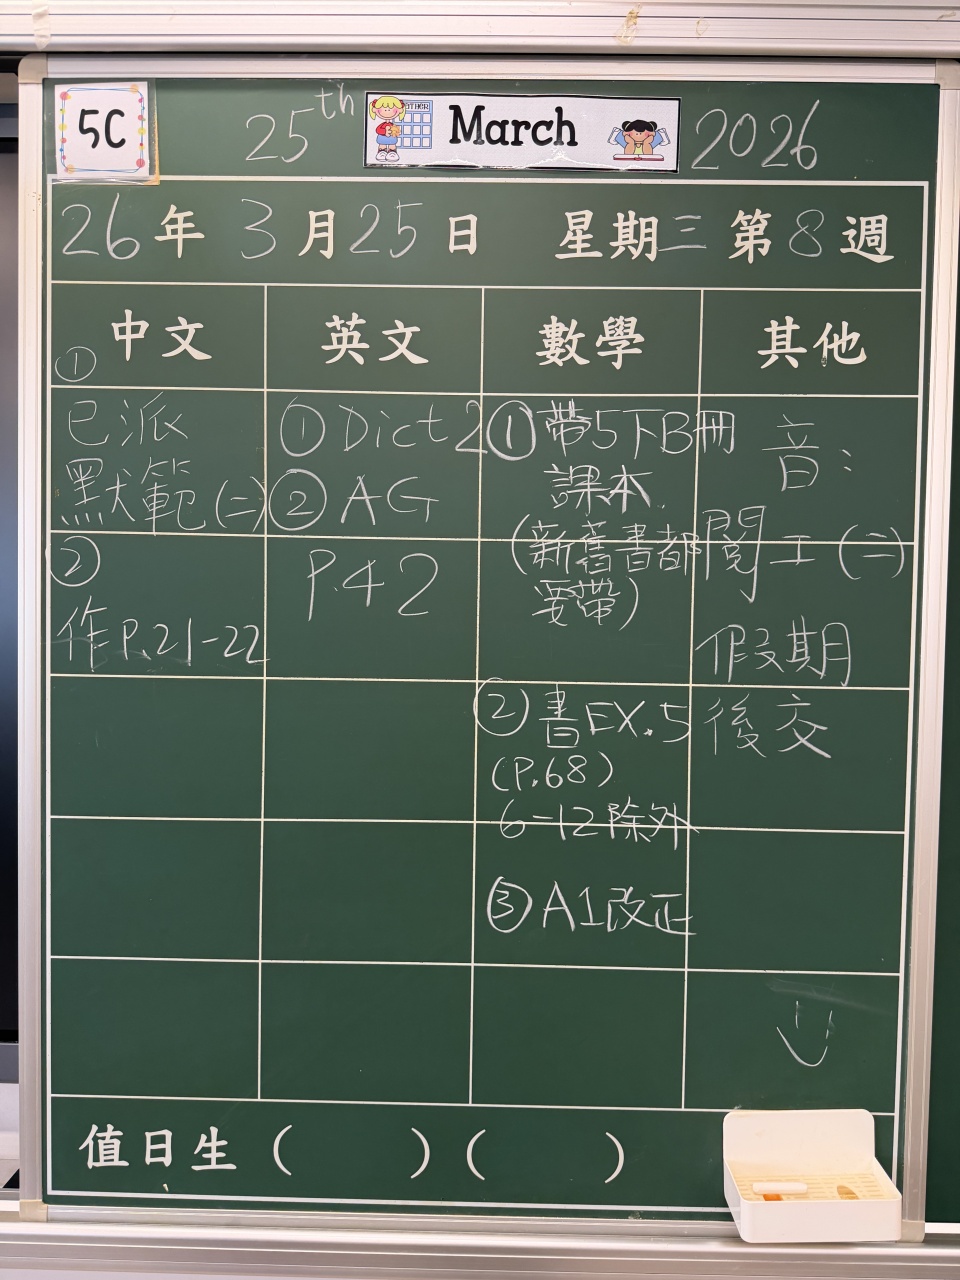 5C
25th March 2026
26年3月25日 星期三第8週
中文
①
已派
默範(二)
②
作P.21-22
英文
① Dict 2
② AG
P.42
數學
① 帶5下B冊
課本.
(新舊書都
要帶)
② 書EX.5
(P.68)
6-12除外
③ A1改正
其他
音:
閱工(二)
假期
後交
值日生 ( ) ( )